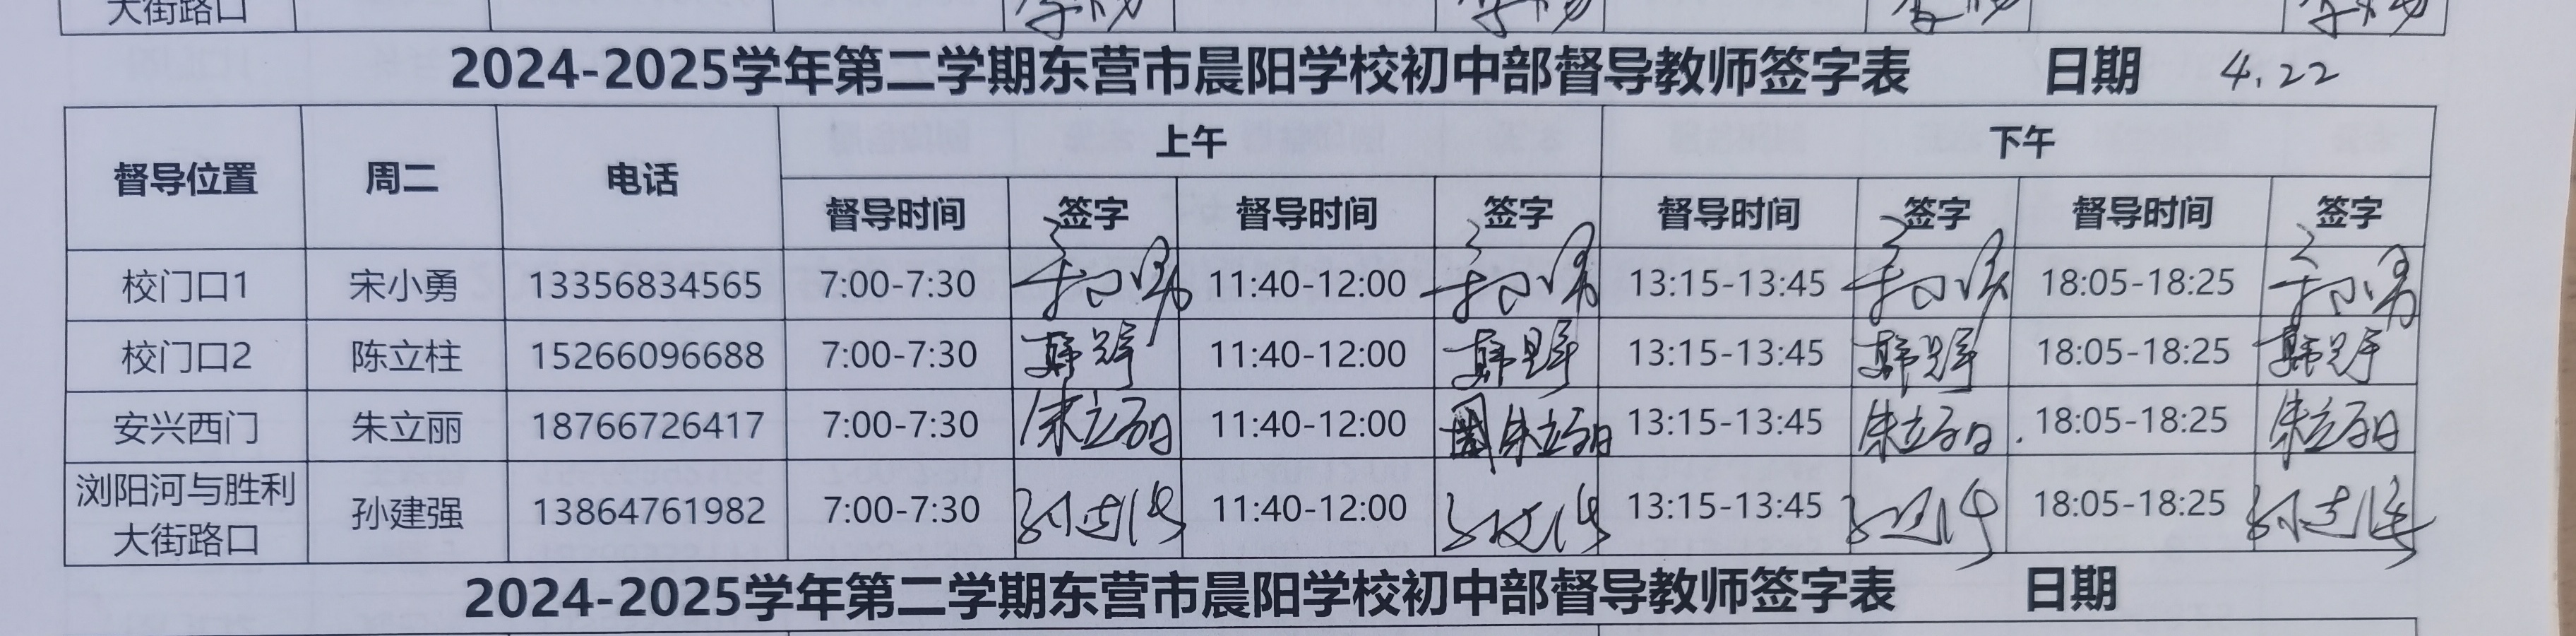 大街路口
2024-2025学年第二学期东营市晨阳学校初中部督导教师签字表 日期 4.22
督导位置 周二 电话 上午 下午
督导时间 签字 督导时间 签字 督导时间 签字 督导时间 签字
校门口1 宋小勇 13356834565 7:00-7:30 宋小勇 11:40-12:00 宋小勇 13:15-13:45 宋小勇 18:05-18:25 宋小勇
校门口2 陈立柱 15266096688 7:00-7:30 11:40-12:00 13:15-13:45 18:05-18:25
安兴西门 朱立丽 18766726417 7:00-7:30 朱立丽 11:40-12:00 朱立丽 13:15-13:45 朱立丽 18:05-18:25 朱立丽
浏阳河与胜利
大街路口 孙建强 13864761982 7:00-7:30 孙建强 11:40-12:00 孙建强 13:15-13:45 孙建强 18:05-18:25 孙建强
2024-2025学年第二学期东营市晨阳学校初中部督导教师签字表 日期